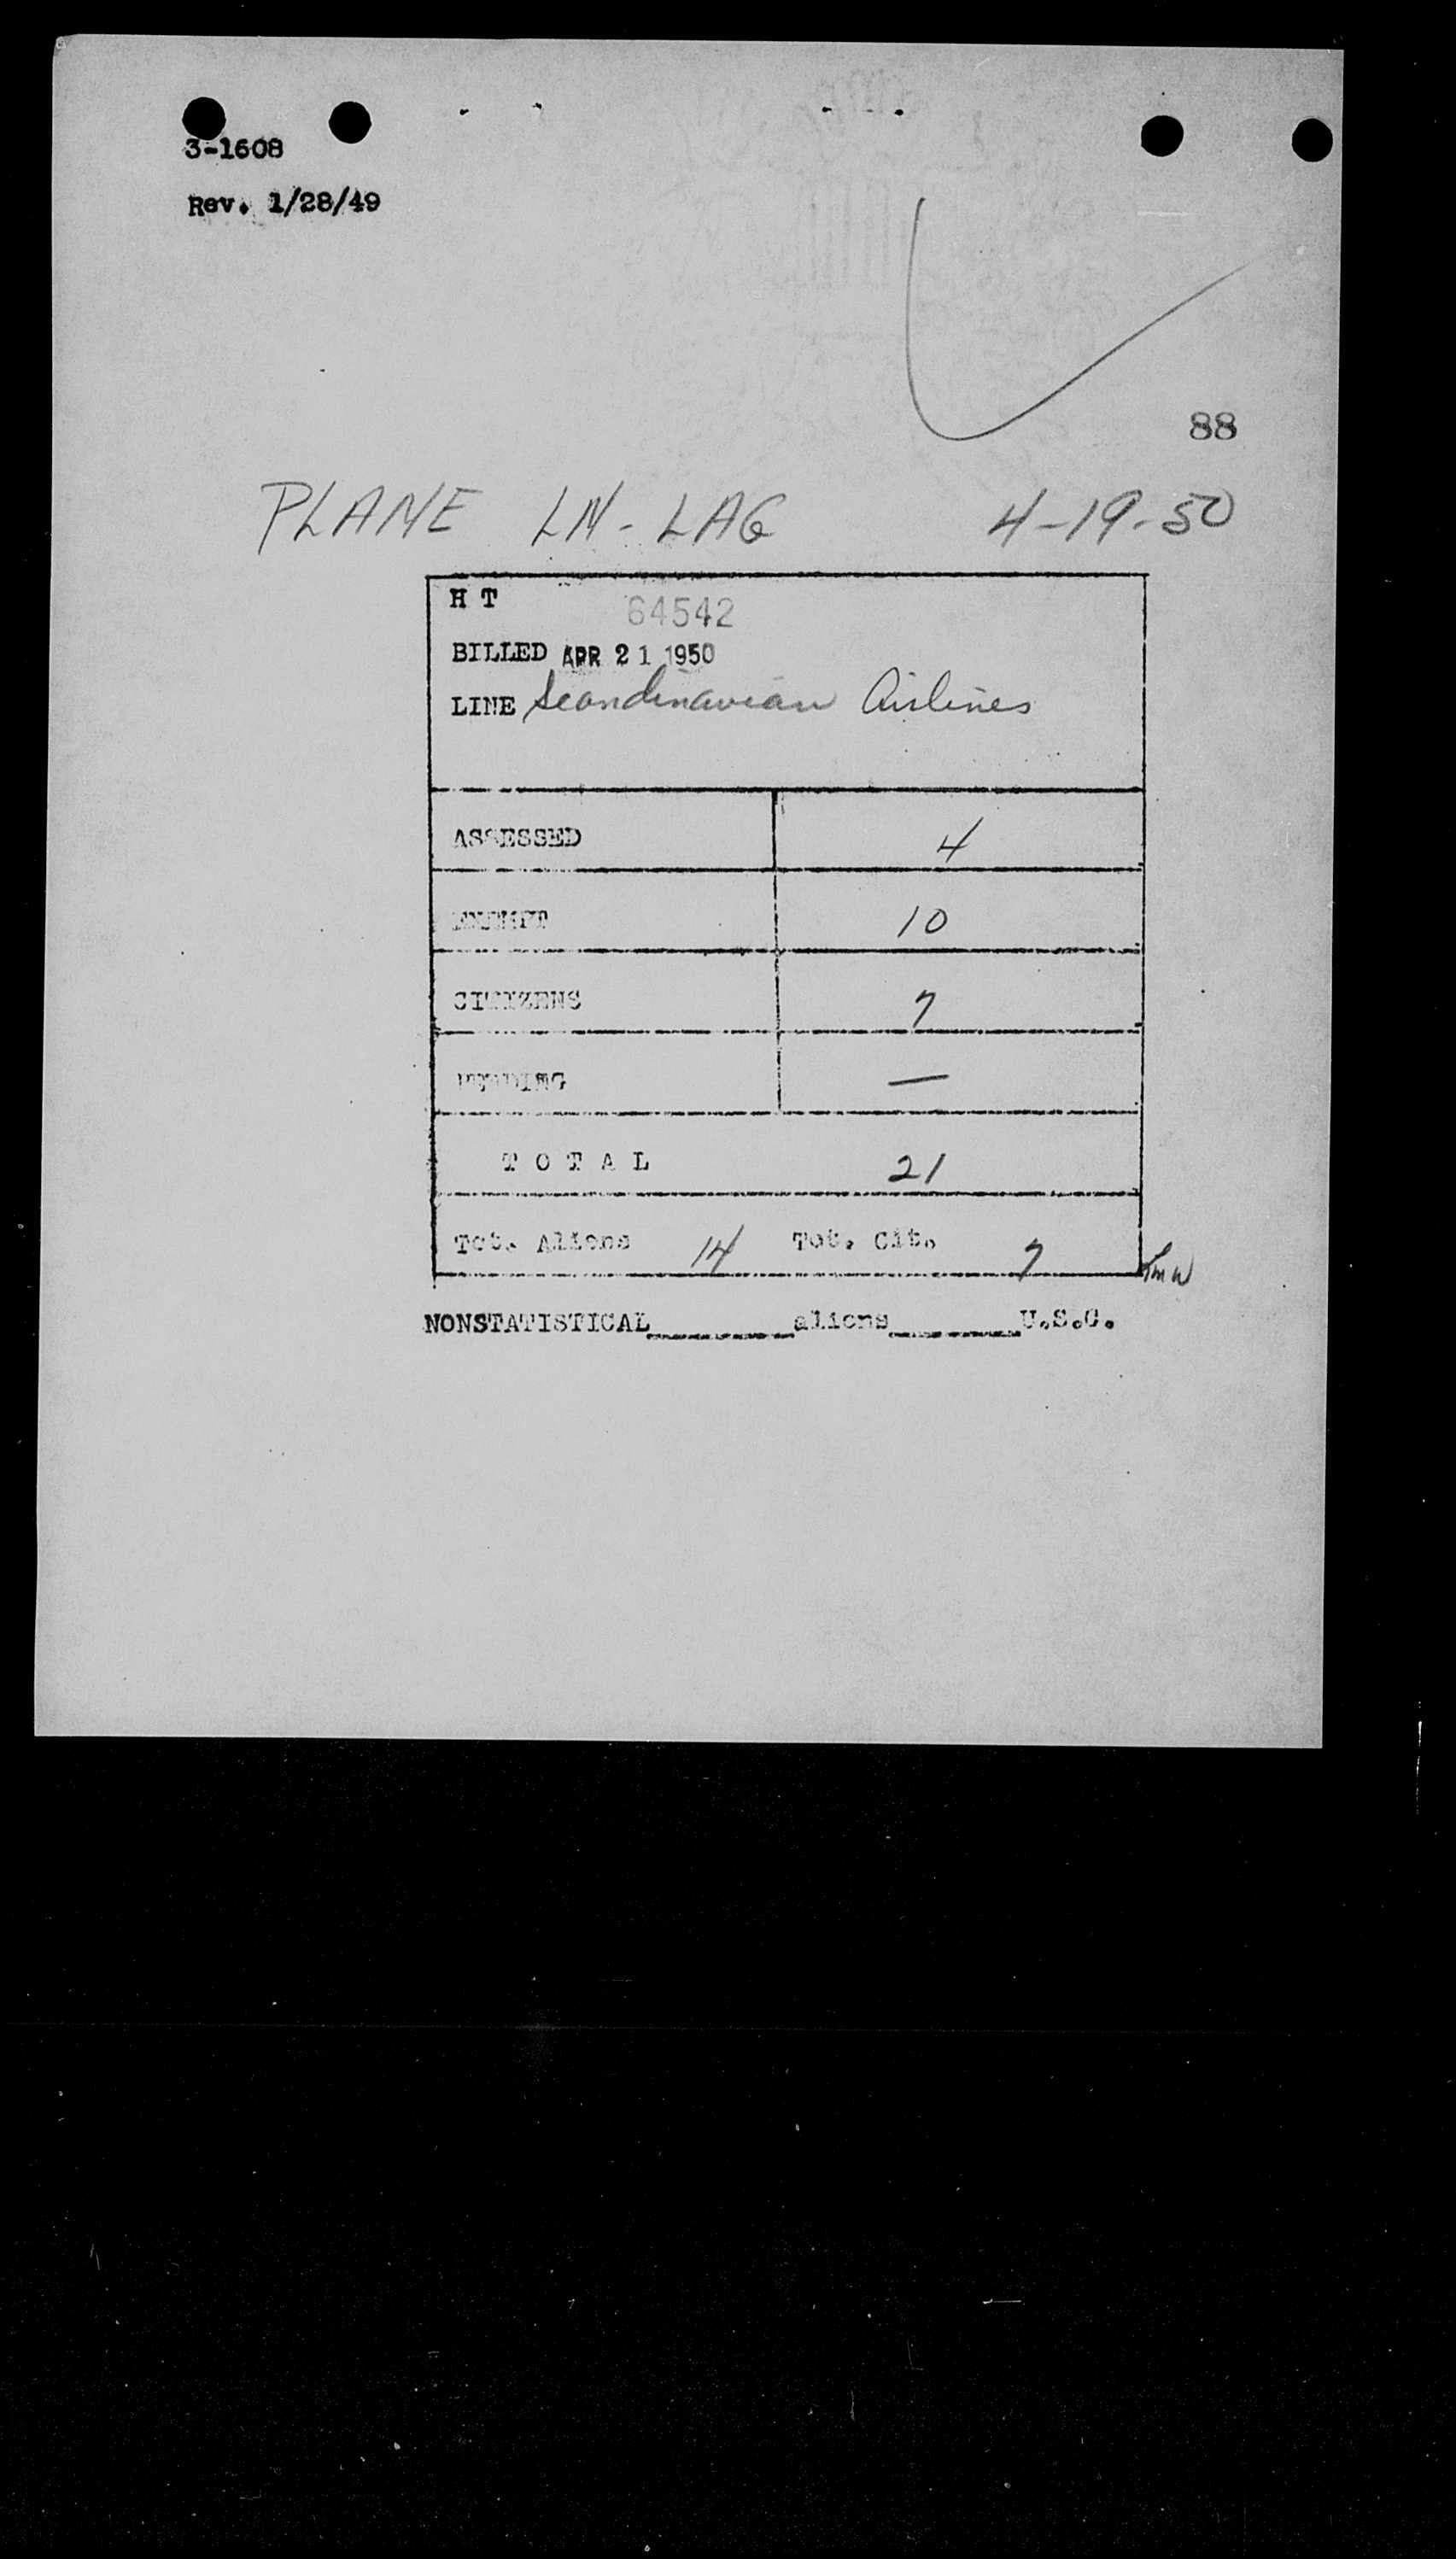 3-1608
Rev. 1/28/49
88
PLANE LN-LAG 4-19-50
H T 64542
BILLED APR 21 1950
LINE Scandinavian Airlines
ASSESSED 4
EXEMPT 10
CITIZENS 7
PENDING —
T O T A L 21
Tot. Aliens 14 Tot. Cit. 7
NONSTATISTICAL aliens U.S.C.